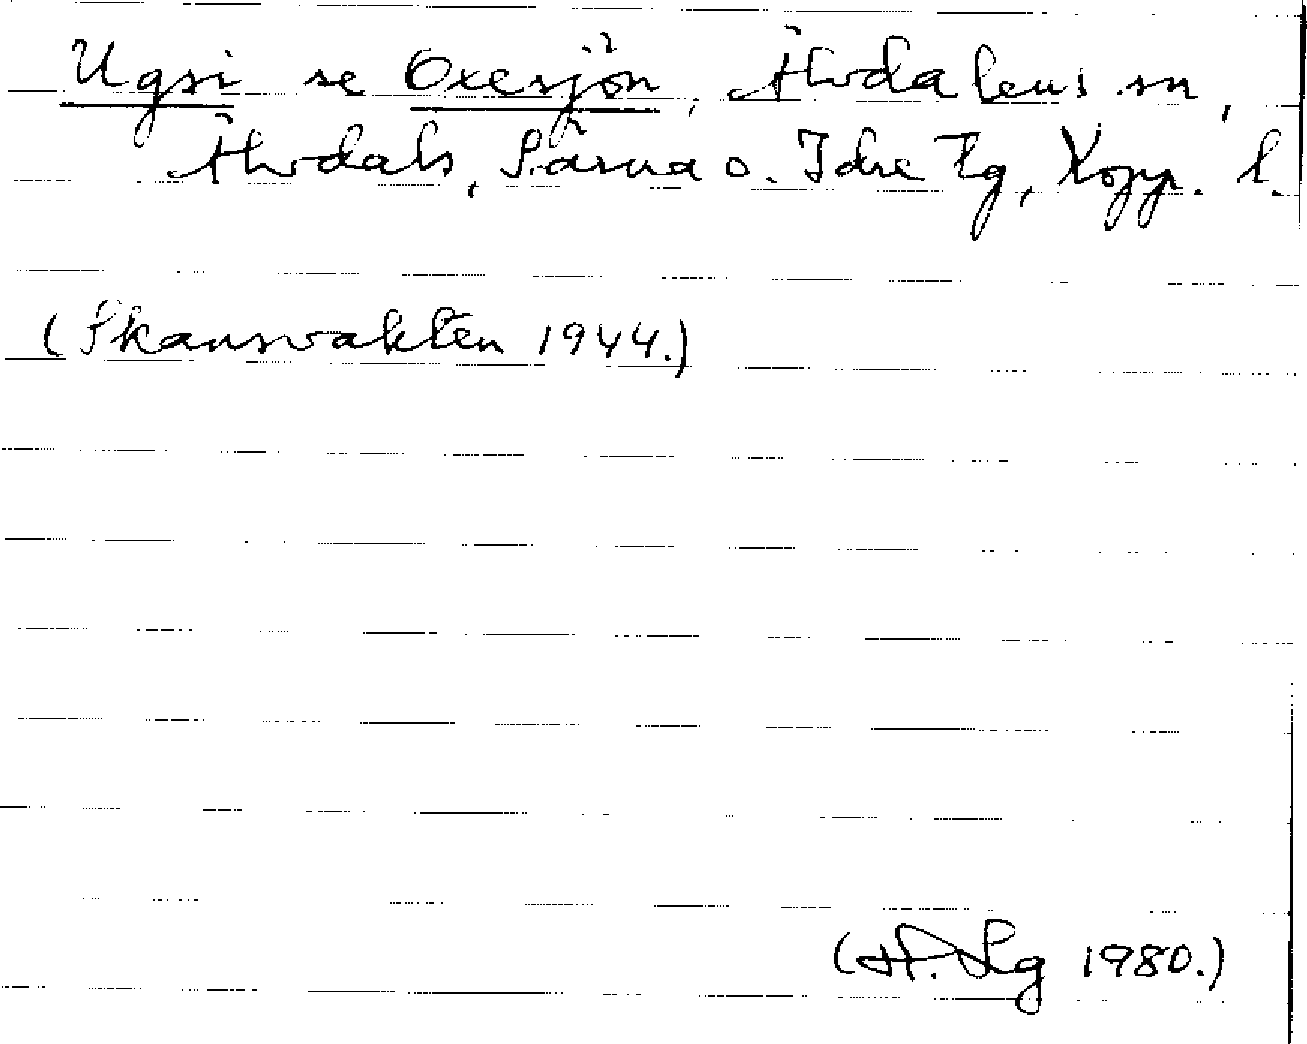 Ugsi se Oxesjön, Älvdalens sn,
Älvdals, Särna o. Idre tg, Kopp. l.
(Skansvakten 1944.)
(H. Lg 1980.)